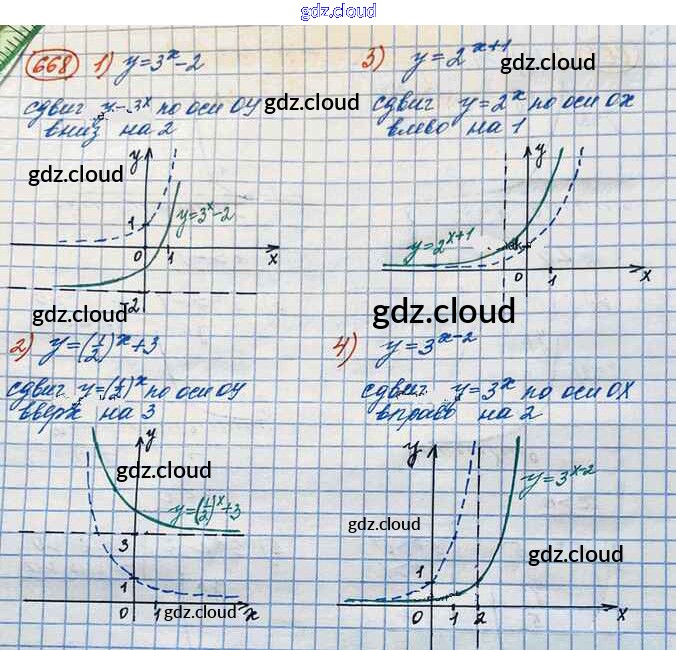 gdz.cloud
668 1) y=3^x-2
сдвиг y=3^x по оси OY gdz.cloud
вниз на 2
gdz.cloud
y
1
y=3^x-2
0 1 x
-2
gdz.cloud
2) y=(1/2)^x+3
сдвиг y=(1/2)^x по оси OY
вверх на 3
y
gdz.cloud
y=(1/2)^x+3
3
1
0 1 gdz.cloud x
3) y=2^{x+1}
gdz.cloud
сдвиг y=2^x по оси OX
влево на 1
y
y=2^{x+1}
0 1 x
gdz.cloud
4) y=3^{x-2}
сдвиг y=3^x по оси OX
вправо на 2
y
y=3^{x-2}
gdz.cloud
gdz.cloud
1
0 1 2 x